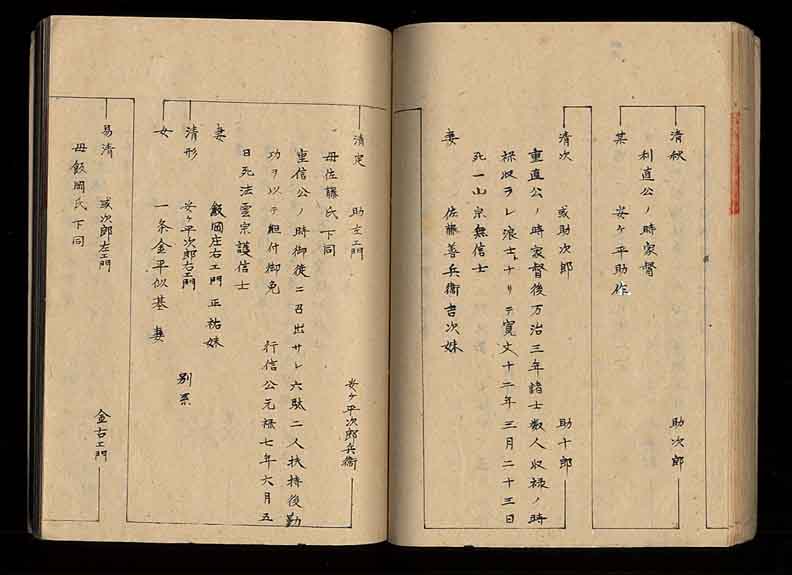 清秋 助次郎
利直公ノ時家督
某 安ヶ平助作
清次 或助次郎 助十郎
重直公ノ時家督後万治三年諸士数人収禄ノ時
禄収ヲレ浪士トナリテ寛文十二年三月二十三日
死一山宗無信士
妻 佐藤善兵衛吉次妹
清定 助左エ門 安ヶ平次郎兵衛
母佐藤氏下同
重信公ノ時御徒ニ召出サレ六駄二人扶持後勤
功ヲ以テ 付御免 行信公元禄七年六月五
日死法雲宗護信士
妻 飯岡庄右エ門正祐妹
清形 安ヶ平次郎右エ門 別系
女 一条金平似基妻
易清 或次郎左エ門 金右エ門
母飯岡氏下同